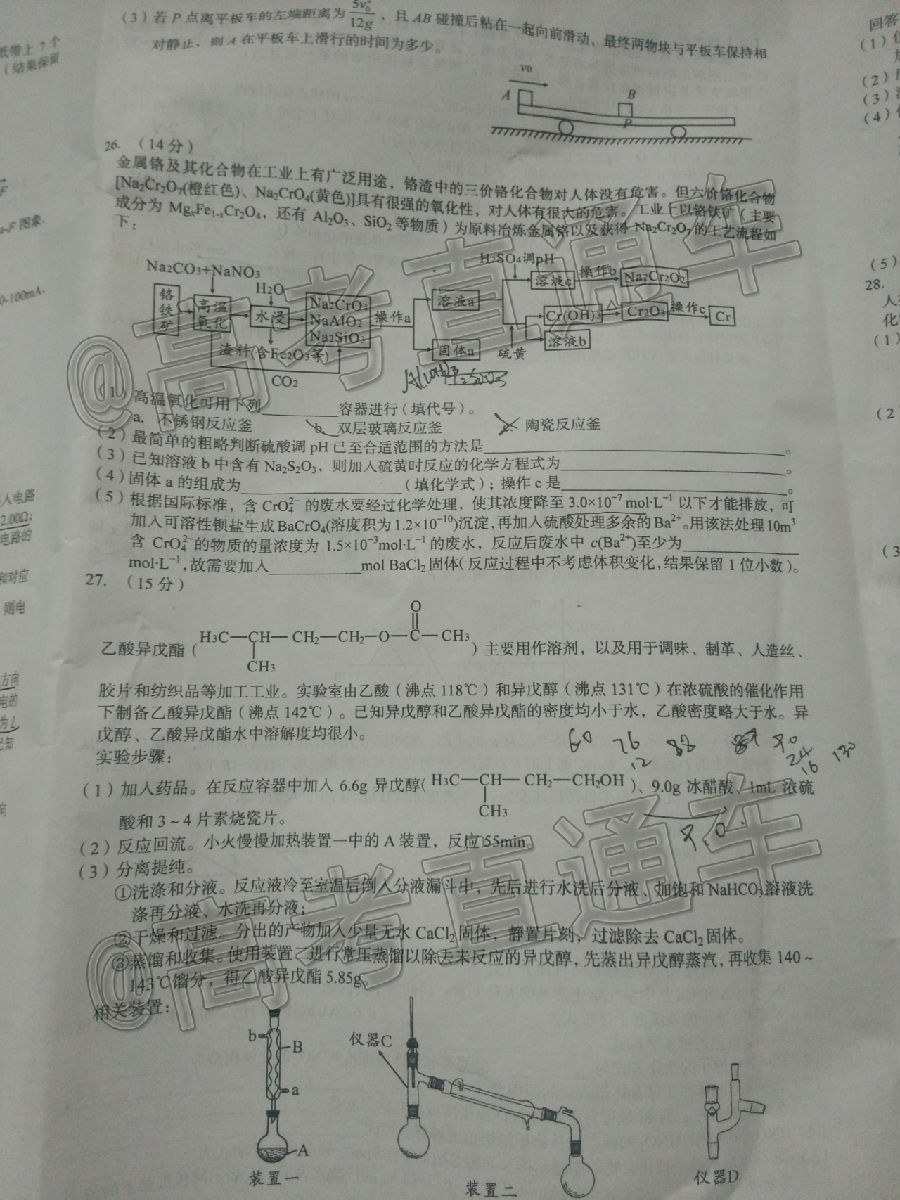 (3)若P点离平板车的左端距离为5v₀²/12g，且AB碰撞后粘在一起向前滑动、最终两物块与平板车保持相
对静止，则A在平板车上滑行的时间为多少。
v0
A
B
P
26.（14分）
金属铬及其化合物在工业上有广泛用途，铬渣中的三价铬化合物对人体没有危害。但六价铬化合物
[Na₂Cr₂O₇(橙红色)、Na₂CrO₄(黄色)]具有很强的氧化性，对人体有很大的危害。工业上以铬铁矿（主要
成分为MgₓFe₁₋ₓCr₂O₄，还有Al₂O₃、SiO₂等物质）为原料冶炼金属铬以及获得Na₂Cr₂O₇的工艺流程如
下：
Na2CO3+NaNO3
H2O
H2SO4调pH
铬铁矿
高温氧化
水浸
Na2CrO4
NaAlO2
Na2SiO2
操作a
溶液a
固体a
溶液c
操作b
Na2Cr2O2
硫黄
Cr(OH)3
△
Cr2O3
操作c
Cr
溶液b
渣料(含Fe2O3等)
CO2
(1)高温氧化可用下列________容器进行（填代号）。
a. 不锈钢反应釜 b. 双层玻璃反应釜 c. 陶瓷反应釜
(2)最简单的粗略判断硫酸调pH已至合适范围的方法是________。
(3)已知溶液b中含有Na₂S₂O₃，则加入硫黄时反应的化学方程式为________。
(4)固体a的组成为________（填化学式）；操作c是________。
(5)根据国际标准，含CrO₄²⁻的废水要经过化学处理，使其浓度降至3.0×10⁻⁷mol·L⁻¹以下才能排放，可
加入可溶性钡盐生成BaCrO₄(溶度积为1.2×10⁻¹⁰)沉淀,再加入硫酸处理多余的Ba²⁺。用该法处理10m³
含CrO₄²⁻的物质的量浓度为1.5×10⁻³mol·L⁻¹的废水，反应后废水中c(Ba²⁺)至少为________
mol·L⁻¹,故需要加入________mol BaCl₂固体(反应过程中不考虑体积变化,结果保留1位小数)。
27.（15分）
乙酸异戊酯（H3C—CH—CH2—CH2—O—C—CH3）主要用作溶剂，以及用于调味、制革、人造丝、
O
CH3
胶片和纺织品等加工工业。实验室由乙酸（沸点118℃）和异戊醇（沸点131℃）在浓硫酸的催化作用
下制备乙酸异戊酯（沸点142℃）。已知异戊醇和乙酸异戊酯的密度均小于水，乙酸密度略大于水。异
戊醇、乙酸异戊酯水中溶解度均很小。
60 76 88
12
24
16 130
实验步骤：
(1)加入药品。在反应容器中加入6.6g异戊醇(H3C—CH—CH2—CH2OH)、9.0g冰醋酸、1mL浓硫
CH3
酸和3～4片素烧瓷片。
(2)反应回流。小火慢慢加热装置一中的A装置，反应55min。
(3)分离提纯。
①洗涤和分液。反应液冷至室温后倒入分液漏斗中，先后进行水洗后分液、加饱和NaHCO₃溶液洗
涤再分液、水洗再分液；
②干燥和过滤。分出的产物加入少量无水CaCl₂固体，静置片刻，过滤除去CaCl₂固体。
③蒸馏和收集。使用装置二进行常压蒸馏以除去未反应的异戊醇，先蒸出异戊醇蒸汽，再收集140～
143℃馏分，得乙酸异戊酯5.85g。
相关装置：
b
B
a
A
装置一
仪器C
装置二
仪器D
@高考直通车
@高考直通车
纸带上7个
（结果保留
a-F图象
0-100mA.
人电路
2.00Ω;
电路的
和对应
则电
方向
电的
为L
已知
向
回答
(1)
(2)
(3)
(4)
(5)
28.
化
(1)
(2
(3